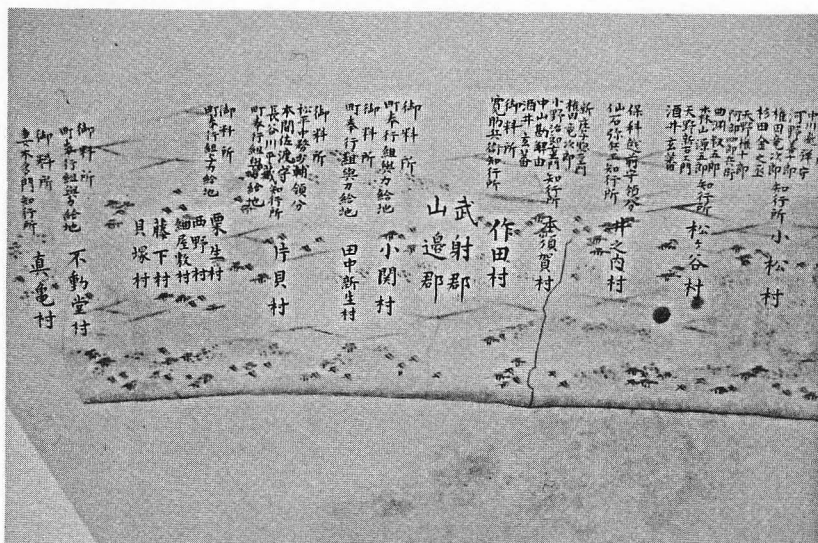 中川飛騨守
河野善十郎
椎田竜次郎知行所
杉田金之丞
小松村
天野権十郎
阿部四郎兵衛
曲渕叔五郎
森山源五郎知行所
天野新五右門
酒井玄蕃
松ヶ谷村
保科越前守領分
仙石弥兵衛知行所
井之内村
新庄与惣右門
椎田竜次郎
小野治郎右門知行所
中山勘解由
酒井玄蕃
本須賀村
御料所
寳朔兵衛知行所
作田村
武射郡
山邉郡
御料所
町奉行組與力給地
小関村
御料所
町奉行組與力給地
田中新生村
御料所
松平中務少輔領分
本間佐渡守
長谷川甲蔵知行所
町奉行組與力給地
片貝村
御料所
町奉行組與力給地
粟生村
西野村
細屋敷村
藤下村
貝塚村
御料所
町奉行組與力給地
不動堂村
御料所
妻木多門知行所
真亀村